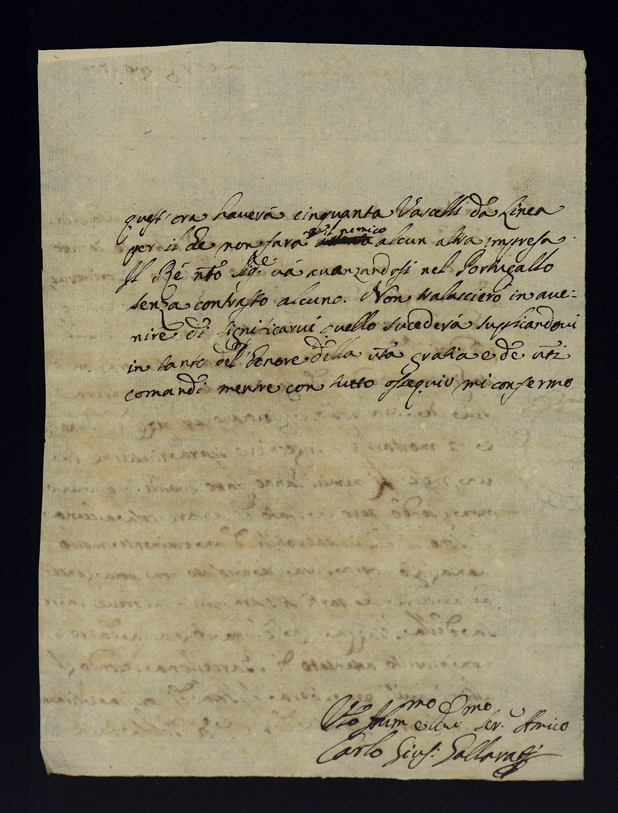 quest'ora haverà cinquanta Vascelli da Linea
per il che non farà il nemico alcun altra impresa
Il Rè nro Sigre và avanzandosi nel Portugallo
senza contrasto alcuno. Non tralascierò in ave-
nire di significarvi quello sucederà supliandovi
in tanto dell'honore della vra gratia e de vri
comandi mentre con tutto ossequio mi confermo
Vro Hummo e Ser. Amico
Carlo Gius.